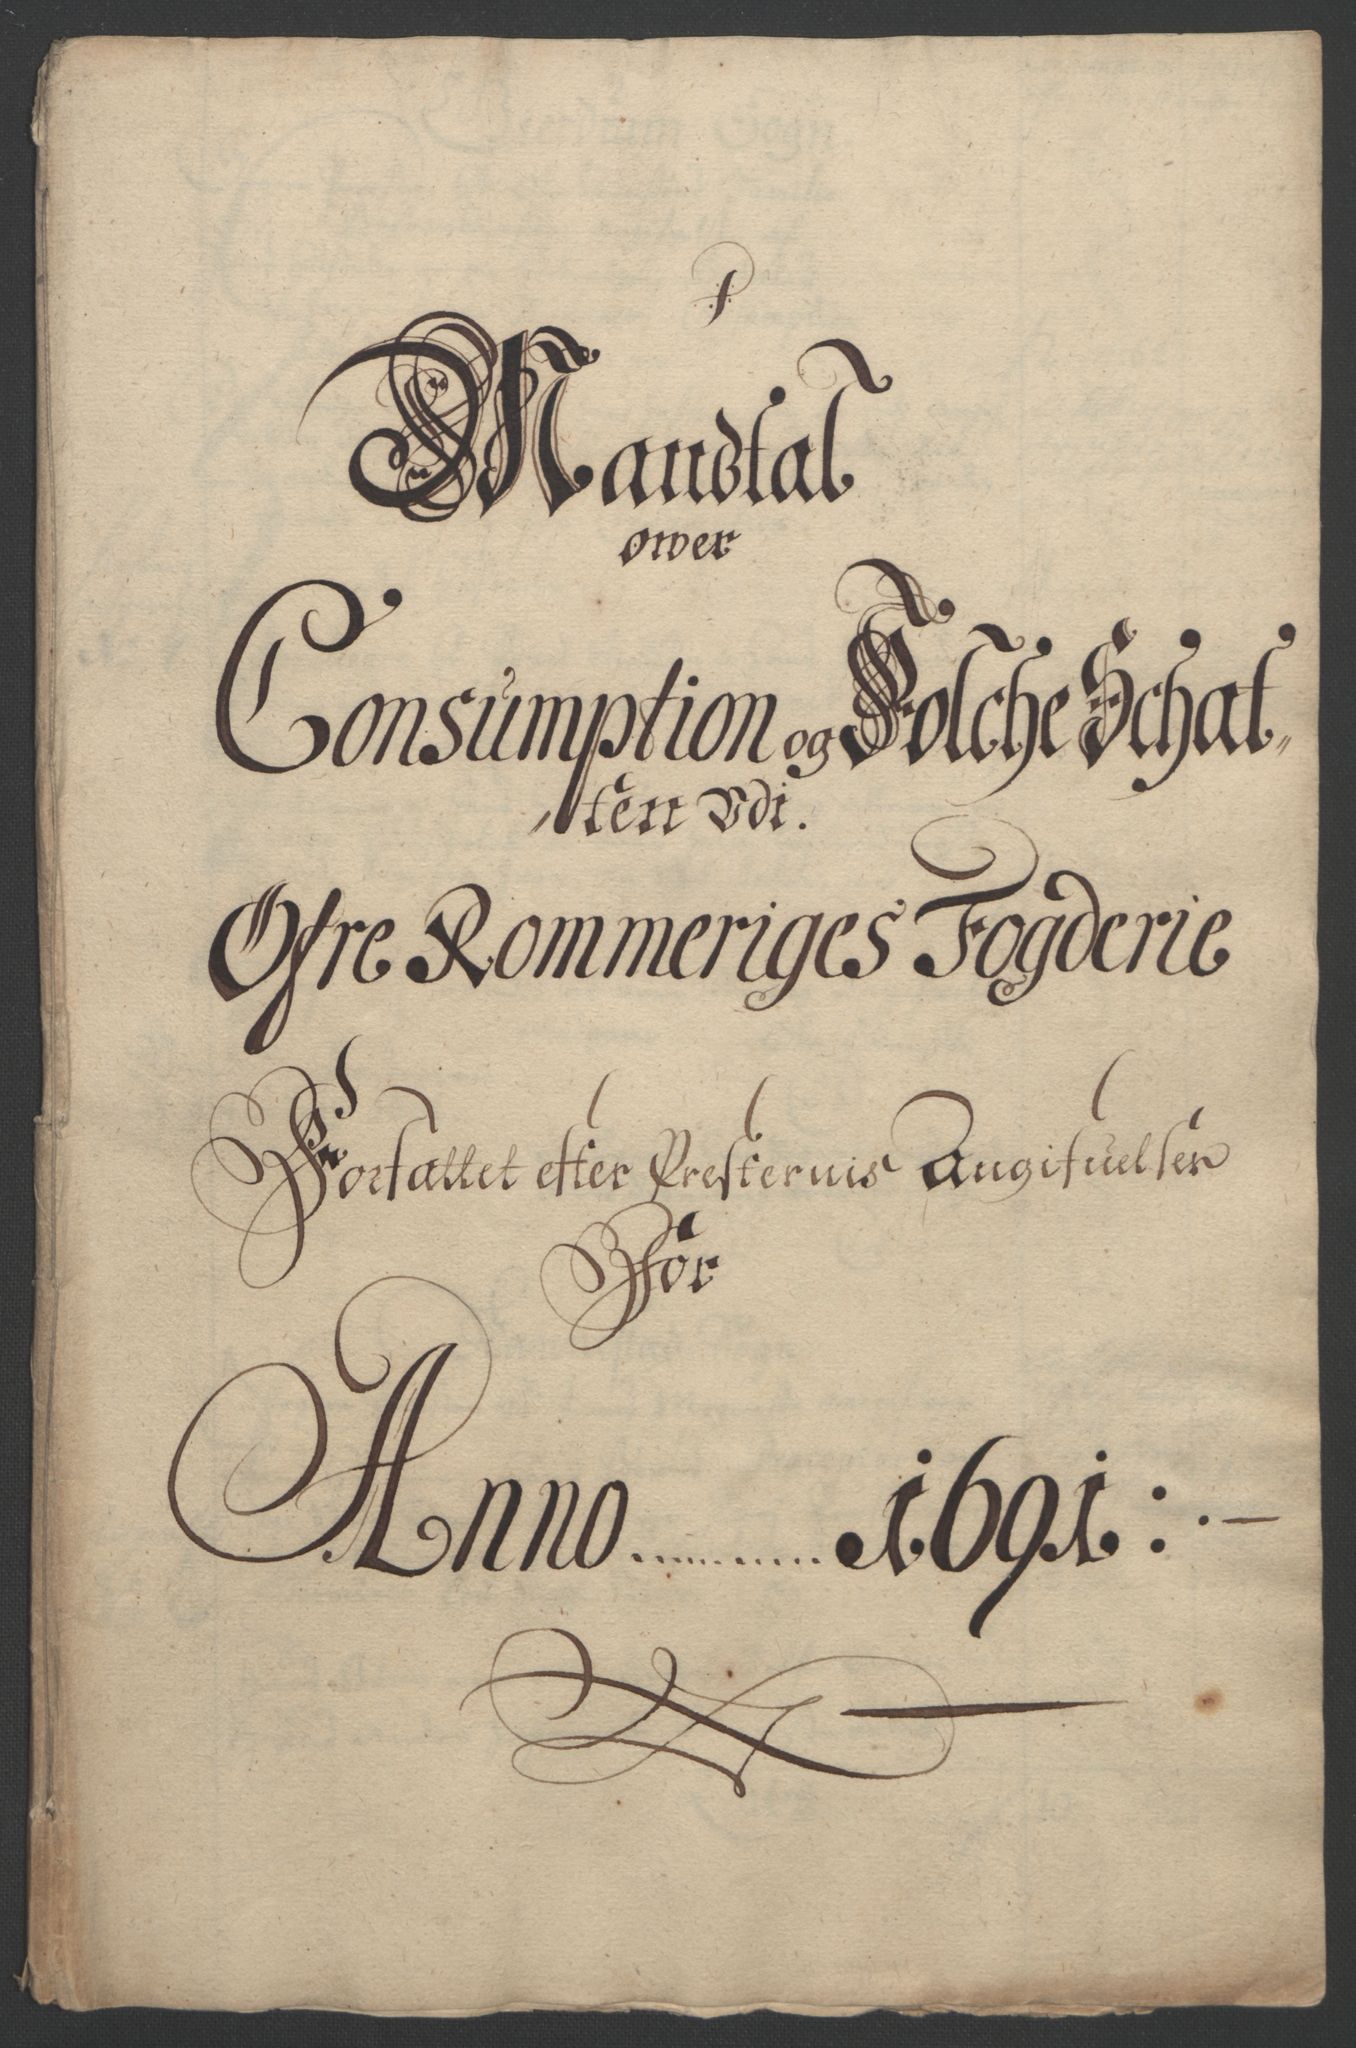 Mandtal
ower
Consumption og Folche Schat„
„ten Vdi.
Øfre Rommeriges Fogderie
Forfattet efter Presternis Angifuelser
For
Anno ......... 1691 : · —